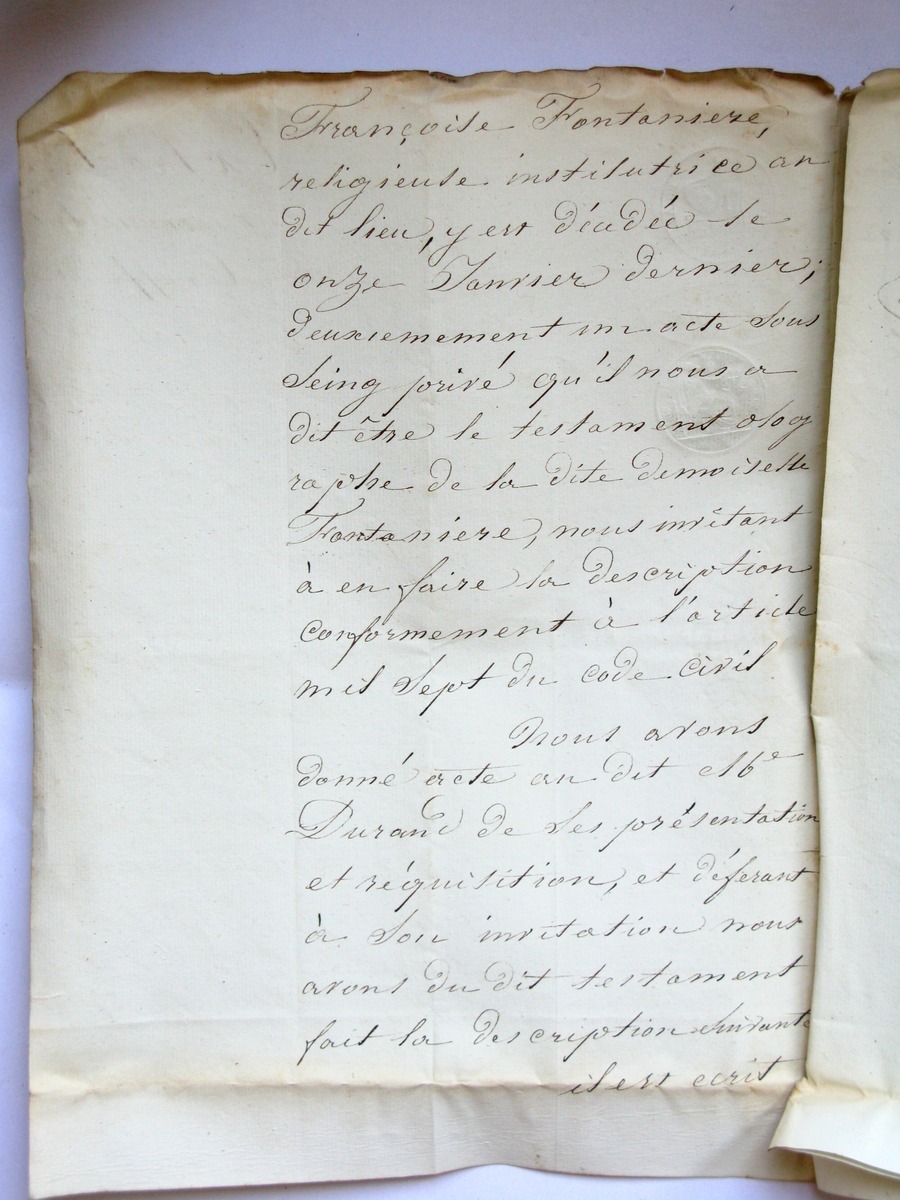 Françoise Fontaniere,
religieuse institutrice au
dit lieu, y est décédée le
onze Janvier dernier;
deuxiemement un acte sous
seing privé qu'il nous a
dit être le testament olog
raphe de la dite demoiselle
Fontaniere, nous invitant
à en faire la description
conformement à l'article
mil sept du code civil
Nous avons
donné acte au dit Me
Durand de ses présentation
et réquisition, et déferant
à son invitation nous
avons du dit testament
fait la description suivante
il est ecrit